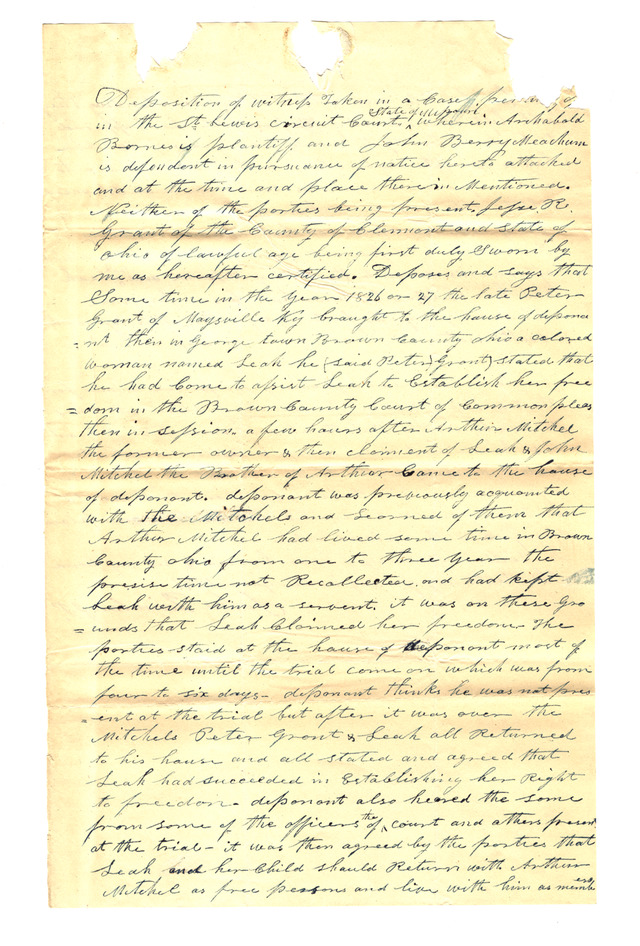 Deposition of witness Taken in a Case
in the St Lewis circuit Court State of Missouri, wherein Archabald
Barnes is plaintiff and John Berry Meachum
is defendent in pursuance of notice hereto attached
and at the time and place therein Mentioned.
Neither of the parties being present. Jesse R.
Grant of the County of Clermont and State of
Ohio of lawful age being first duly Sworn by
me as hereafter certified. Deposes and says that
Some time in the year 1826 or 27 the late Peter
Grant of Maysville Ky braught to the house of depona
= nt then in George town Brown County ohio a colored
woman named Leah he (said Peter Grant) stated that
he had Come to assist Leah to Establish her free
= dom in the Brown County Court of Common pleas
then in session. a few hours after Arthur Mitchel
the former owner & then claiment of Leah & John
Mitchel the Brother of Arthur Came to the house
of deponant. deponant was previously acquainted
with the Mitchels and Learned of them that
Arthur Mitchel had lived some time in Brown
County ohio from one to three year the
presise time not Recallected. and had kept
Leah with him as a servent. it was on these Gro
= unds that Leah Claimed her freedom. The
parties staid at the house of deponant most of
the time until the trial come on which was from
four to six days - deponant thinks he was not pres
= ent at the trial but after it was over the
Mitchels Peter Grant & Leah all Returned
to his house and all stated and agreed that
Leah had succeeded in Establishing her Right
to freedom - deponant also heared the same
from some of the officers of the court and athers present
at the trial - it was then agreed by the parties that
Leah and her Child should Return with Arthur
Mitchel as free persons and live with him as members